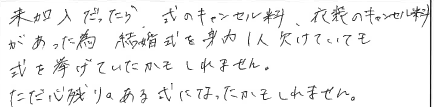 未加入だったら、式のキャンセル料、衣装のキャンセル料
があった為 結婚式を身内1人欠けていても
式を挙げていたかもしれません。
ただ心残りのある式になったかもしれません。